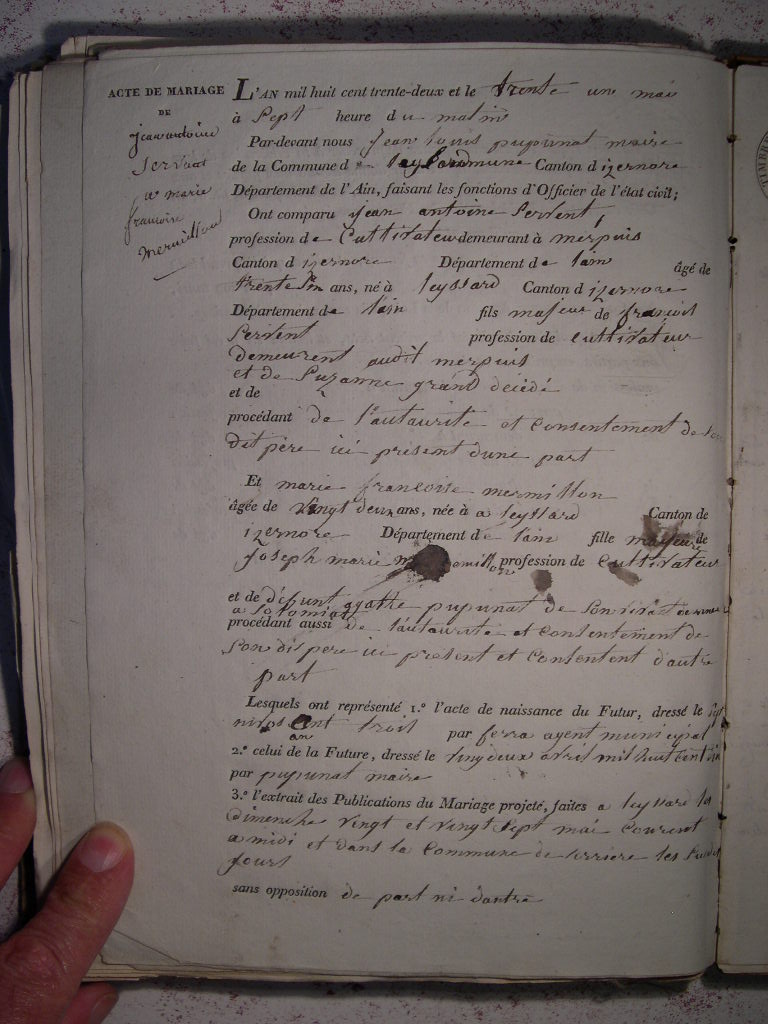 ACTE DE MARIAGE
DE
jean antoine
Servent
a marie
francoise
mermillon
L'AN mil huit cent trente-deux et le trente un mai
à Sept heure du matin
Par-devant nous jean louis pupunat maire
de la Commune d Leyssard Canton d izernore
Département de l'Ain, faisant les fonctions d'Officier de l'état civil;
Ont comparu jean antoine Servent,
profession de Cultivateur demeurant à merpuis
Canton d izernore Département de lain âgé de
trente ans, né à leyssard Canton d izernore
Département de lain fils majeur de francois
Servent profession de cultivateur
demeurent audit merpuis
et de Suzanne grand décédé
et de
procédant de l'autaurite et consentement de son
dit père ici présent dune part
Et marie francoise mermillon
âgée de vingt deux ans, née à a leyssard Canton de
izernore Département de lain fille majeure de
Joseph marie profession de Cultivateur
et de défunt agathe pupunat de son vivant
a Solomiat
procédant aussi de l'autaurite et consentement de
son dis pere ici présent et consentent d'autre
part
Lesquels ont représenté 1.° l'acte de naissance du Futur, dressé le
nivos an trois par ferra agent municipal
2.° celui de la Future, dressé le vingdeux avril mil huit cent
par pupunat maire
3.° l'extrait des Publications du Mariage projeté, faites a leyssard les
dimenche vingt et vingt Sept mai courent
a midi et dans la Commune de Serriere les susdit
jours
sans opposition de part ni dautre
TIMBRE